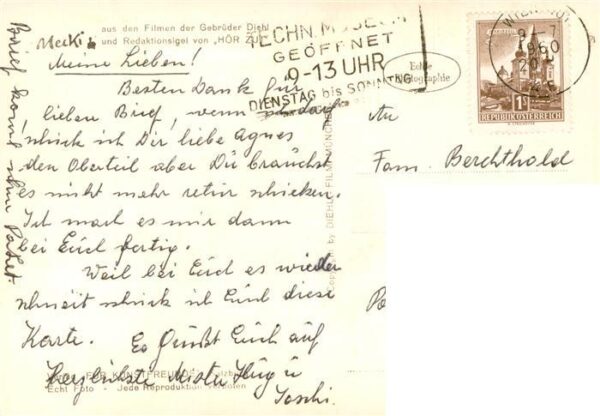 Mecki aus den Filmen der Gebrüder Diehl
und Redaktionsigel von „HÖR ZU"
Meine Lieben!
Besten Dank für
lieben Brief, wenn
schick ich Dir liebe Agnes
den Oberteil aber Du brauchst
es nicht mehr retur schicken.
Ich mach es mir dann
bei Euch fertig.
Weil bei Euch es wieder
schneit schick ich Euch diese
Karte. Es Grüßt Euch auf
FÜR KUNSTFREUNDE
Herzlichste
Echt Foto - Jede Reproduktion verboten
Brief kommt Paket.
Copyright by DIEHL-FILM MÜNCHEN
TECHN. MUSEUM
GEÖFFNET
9-13 UHR
DIENSTAG bis SONNTAG
Echte
Photographie
WIEN
1960
20
1S
REPUBLIK ÖSTERREICH
An
Fam. Berchthold